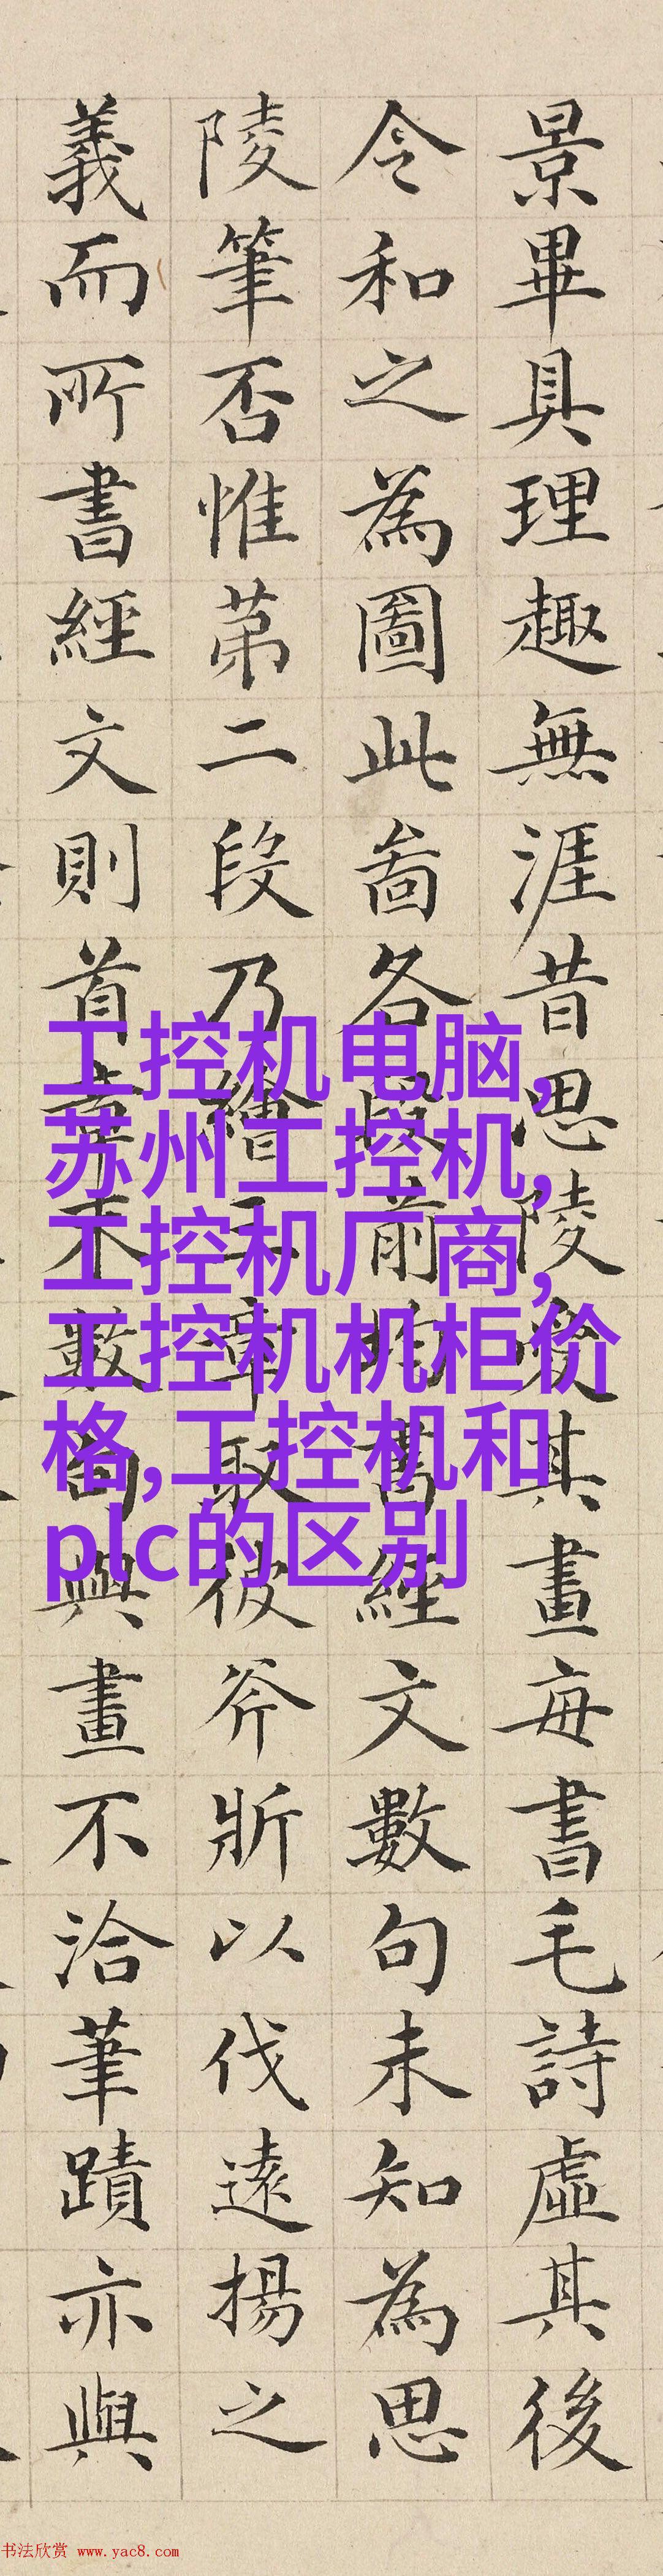 景畢具理趣無涯昔思陵愛其畫每書毛詩虛其後
令和之為圖此啚各前經文數句未知為思
陵筆否惟苐二段乃繪三章取彼斧斨以伐遠揚之
義而所書經文則首章末數句與畫不洽筆蹟亦與
工控机电脑,
苏州工控机,
工控机厂商,
工控机机柜价
格,工控机和
plc的区别
书法欣赏 www.yac8.com